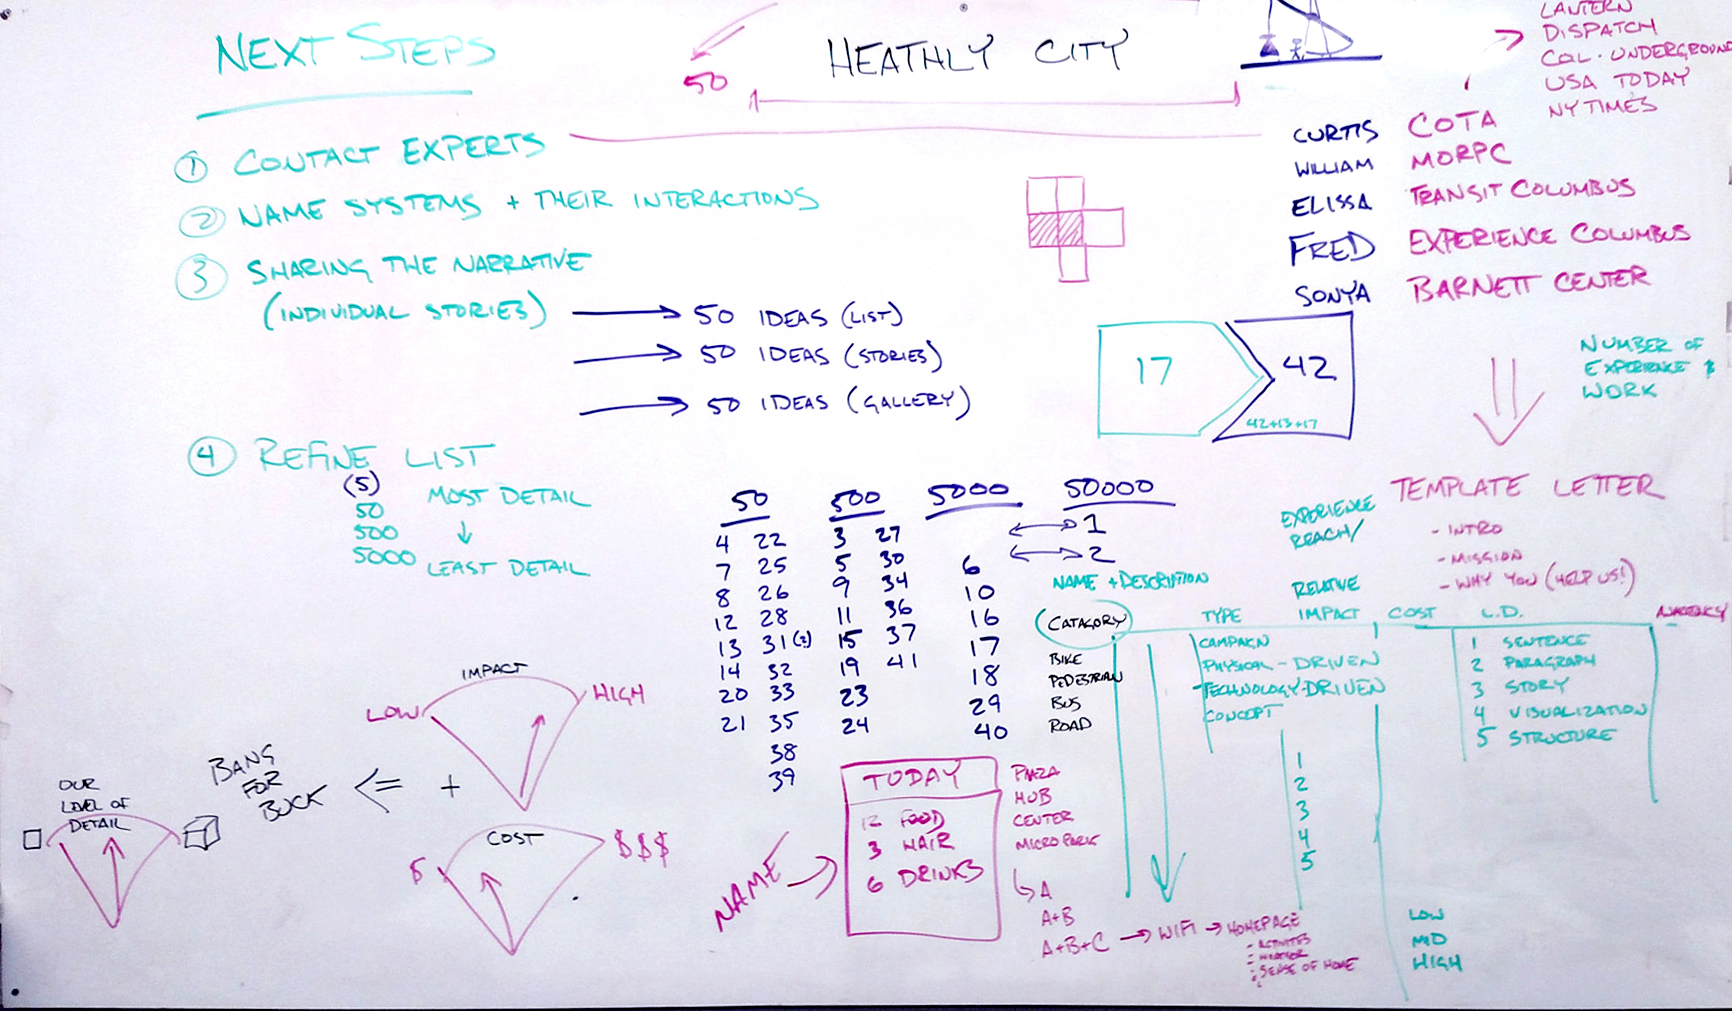 NEXT STEPS
50
HEATHLY CITY
LANTERN
DISPATCH
COL. UNDERGROUND
USA TODAY
NY TIMES
① CONTACT EXPERTS
② NAME SYSTEMS + THEIR INTERACTIONS
③ SHARING THE NARRATIVE
(INDIVIDUAL STORIES)
50 IDEAS (LIST)
50 IDEAS (STORIES)
50 IDEAS (GALLERY)
CURTIS COTA
WILLIAM MORPC
ELISSA TRANSIT COLUMBUS
FRED EXPERIENCE COLUMBUS
SONYA BARNETT CENTER
17
42
42+13+17
NUMBER OF
EXPERIENCE $
WORK
④ REFINE LIST
(5)
50
500
5000
MOST DETAIL
LEAST DETAIL
50
4 22
7 25
8 26
12 28
13 31(2)
14 32
20 33
21 35
38
39
500
3 27
5 30
9 34
11 36
15 37
19 41
23
24
5000
6
10
16
17
18
29
40
50000
1
2
TEMPLATE LETTER
- INTRO
- MISSION
- WHY YOU (HELP US!)
EXPERIENCE
REACH/
RELATIVE
IMPACT
NAME + DESCRIPTION
CATAGORY
BIKE
PEDESTRIAN
BUS
ROAD
TYPE
CAMPAIGN
PHYSICAL-DRIVEN
TECHNOLOGY-DRIVEN
CONCEPT
1
2
3
4
5
COST
LOW
MD
HIGH
L.D.
1 SENTENCE
2 PARAGRAPH
3 STORY
4 VISUALIZATION
5 STRUCTURE
IMPACT
LOW
HIGH
+
COST
$
$$$
<=
BANG
FOR
BUCK
OUR
LEVEL OF
DETAIL
NAME
TODAY
12 FOOD
3 HAIR
6 DRINKS
PLAZA
HUB
CENTER
MICRO PARK
A
A+B
A+B+C → WIFI → HOMEPAGE
- ACTIVITES
- WEATHER
- SENSE OF HOME